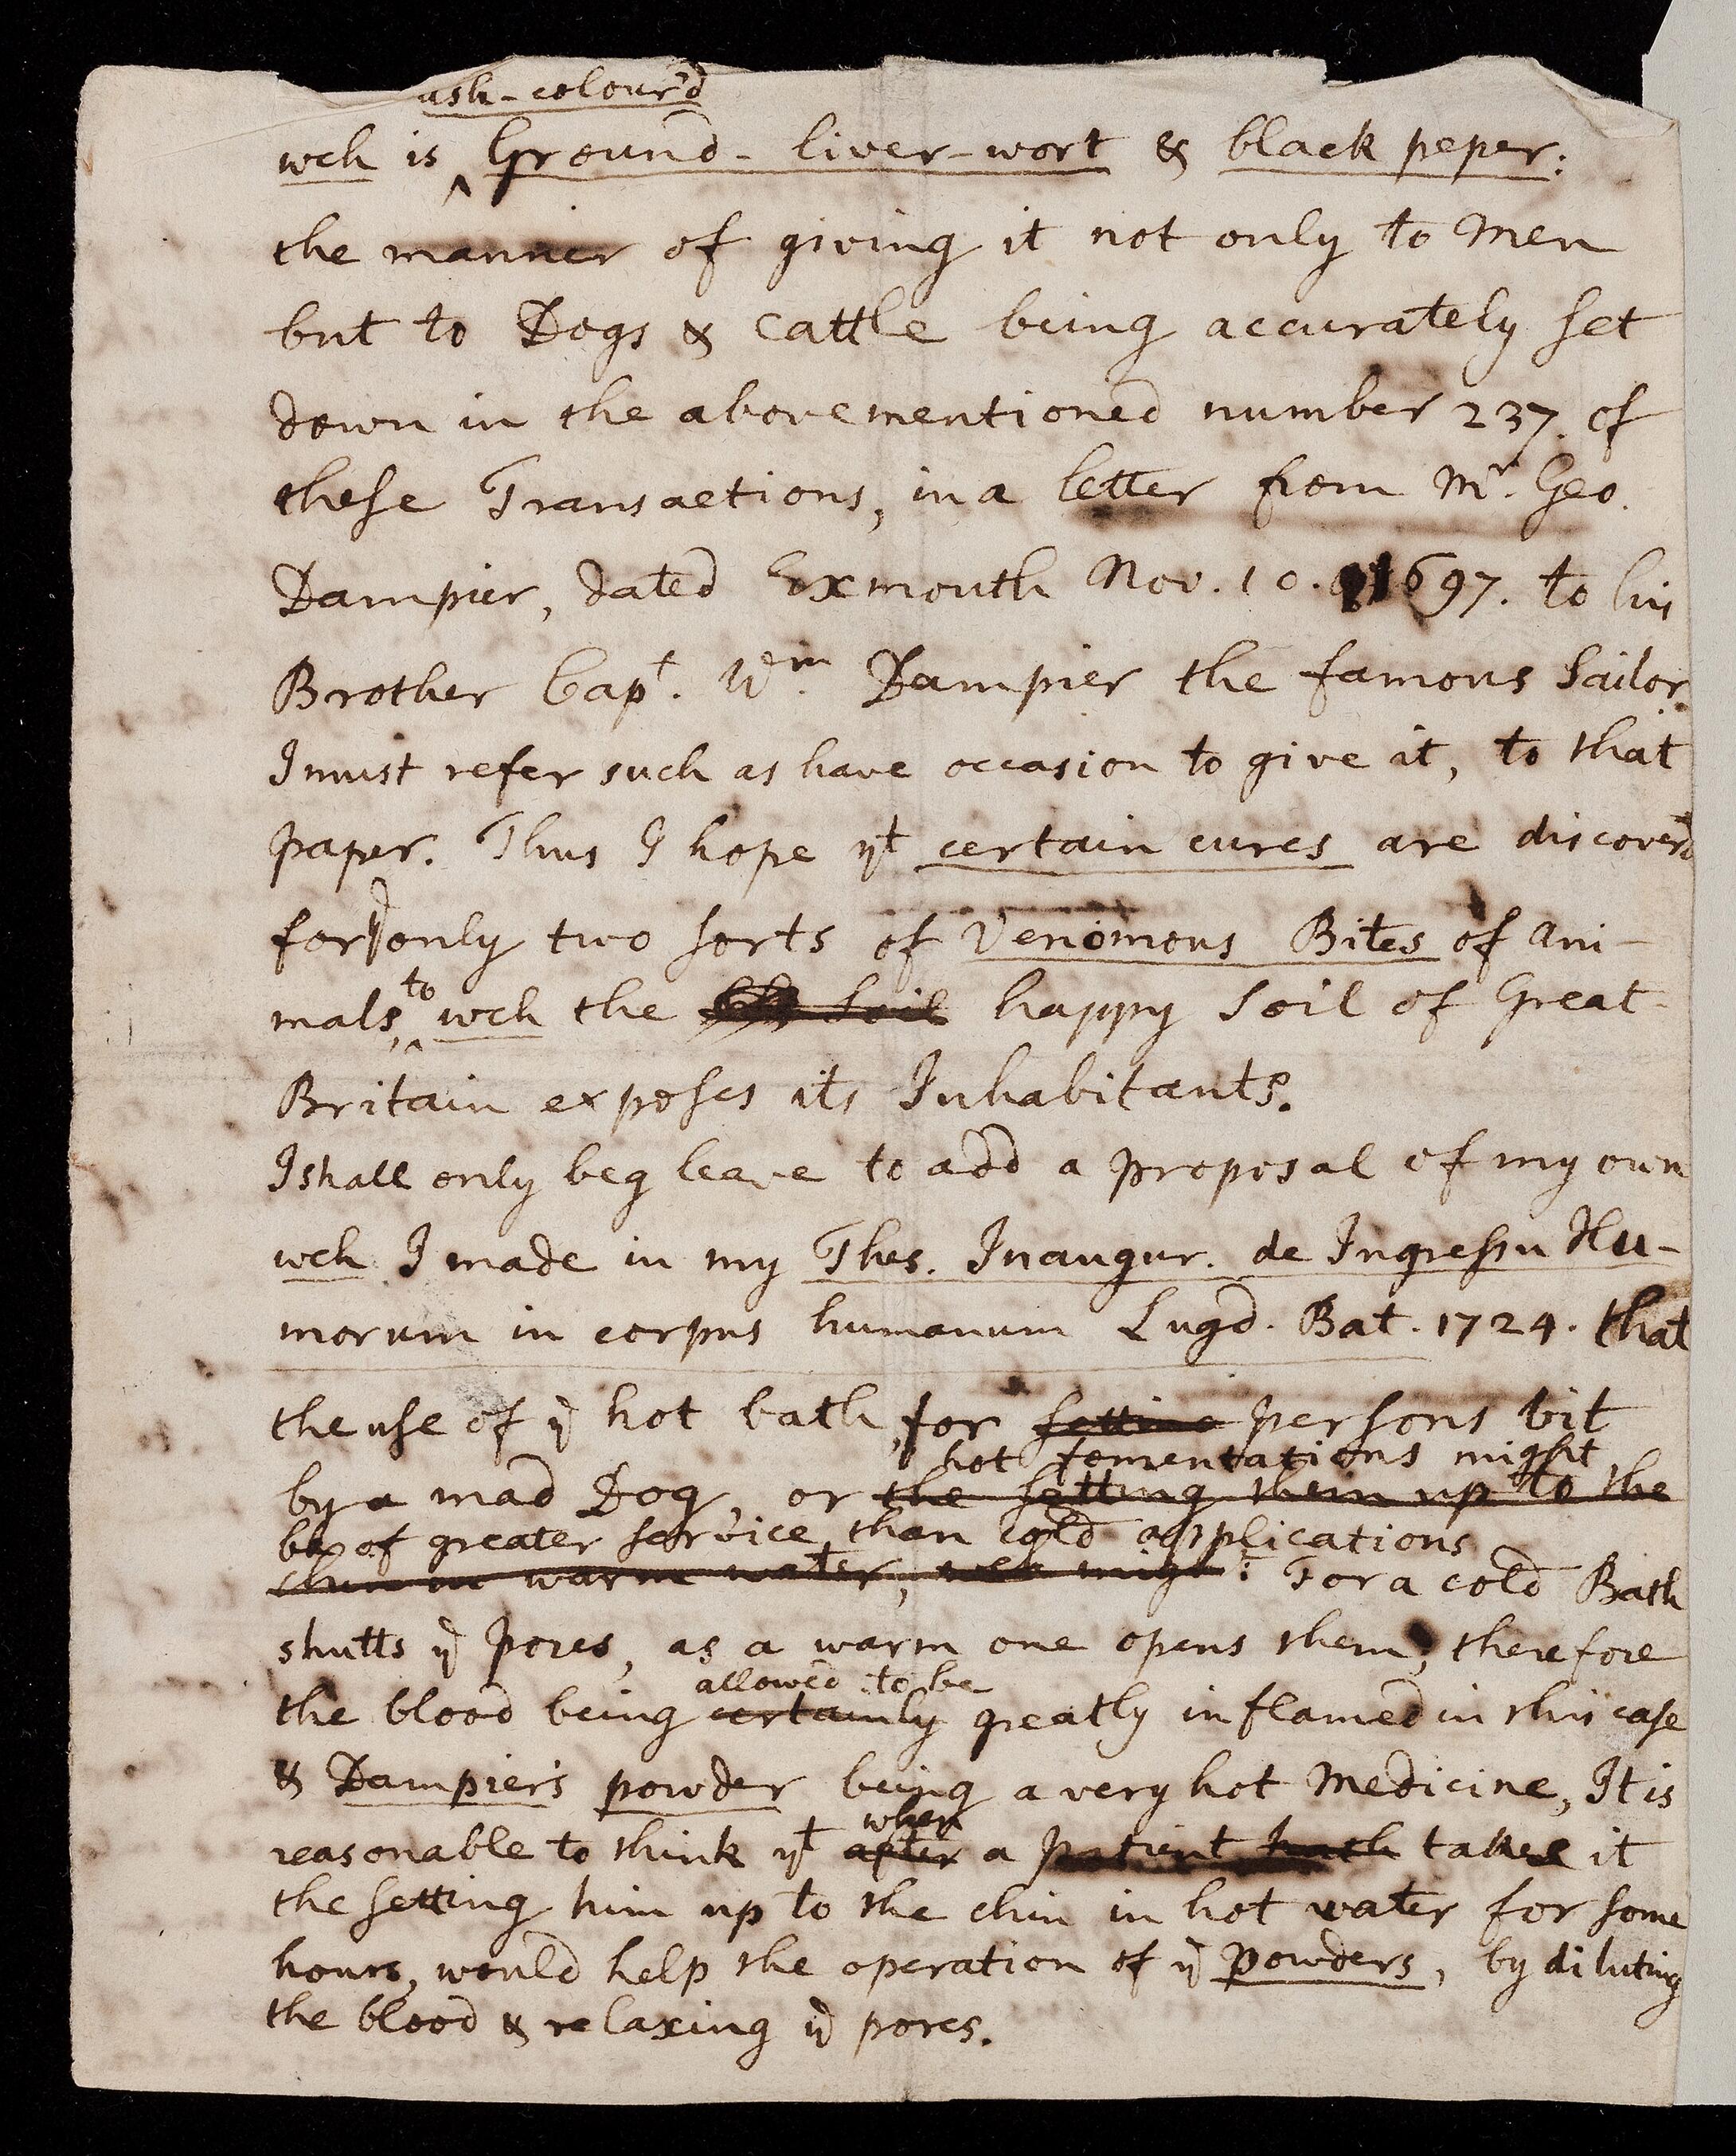 ash-colour'd
wch is ^ Ground-liver-wort & black peper:
the manner of giving it not only to Men
but to Dogs & Cattle being accurately set
down in the abovementioned number 237. of
these Transactions, in a letter from Mr. Geo.
Dampier, dated Exmouth Nov. 10. 1697. to his
Brother Capt. Wm. Dampier the famous Sailor
I must refer such as have occasion to give it, to that
paper. Thus I hope yt certain cures are discover'd
for ye only two sorts of Venomous Bites of Ani-
to
mals, ^ wch the soil happy Soil of Great-
Britain exposes its Inhabitants.
I shall only beg leave to add a proposal of my own
wch I made in my Thes. Inaugur. de Ingressu Hu-
morum in corpus humanum Lugd. Bat. 1724. that
the use of ye hot bath, for setting persons bit
hot fomentations might
by a mad Dog, or the setting them up to the
be of greater service than cold applications
chin in warm water, wch might: For a cold Bath
shutts ye Pores, as a warm one opens them, therefore
allowed to be
the blood being certainly greatly inflamed in this case
& Dampier's powder being a very hot Medicine, It is
when
reasonable to think yt after a patient hath takes it
the setting him up to the chin in hot water for some
hours, would help the operation of ye Powders, by diluting
the blood & relaxing ye pores.